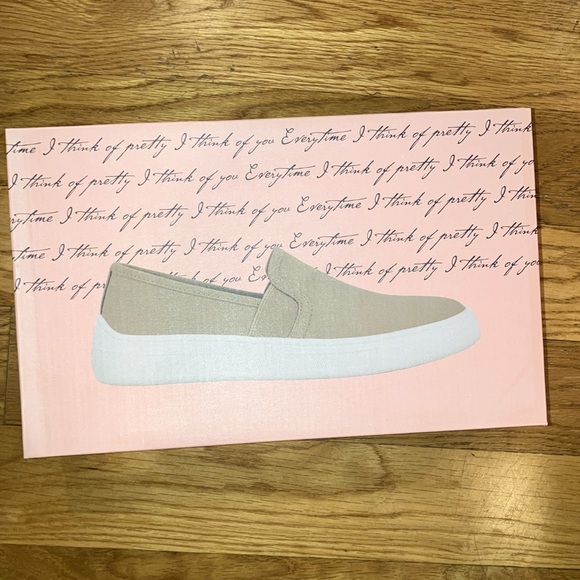 time I think of pretty I think of you Everytime I think of pretty I think
I think of pretty I think of you Everytime I think of pretty I think of yo
rytime I think of pretty I think of you Everytime I think of pretty I thin
time I think of pretty I think of you Everytime I think of pretty I think
I think of pr I think of you Everytime I think of pretty I think of you